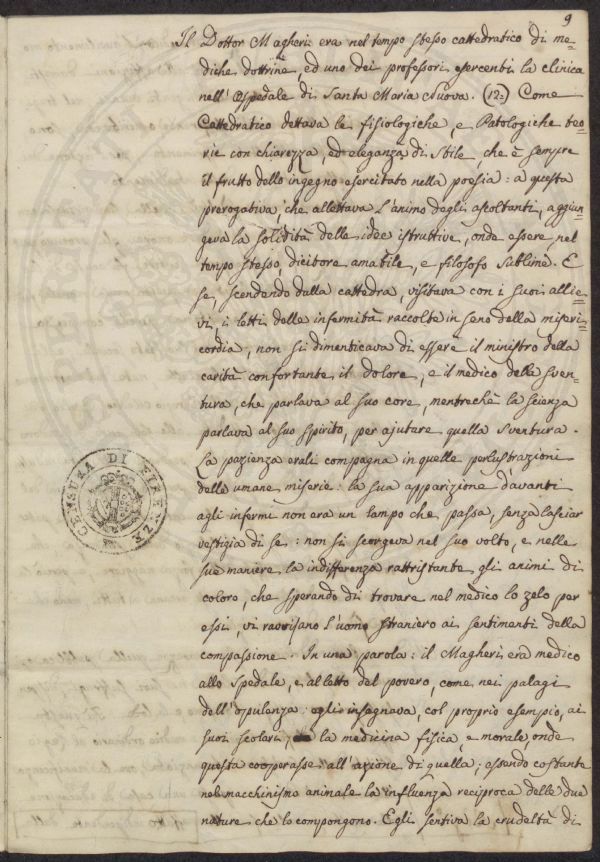 9
Il Dottor Magheri era nel tempo stesso cattedratico di me=
diche dottrine, ed uno dei professori esercenti la clinica
nell'Ospedale di Santa Maria Nuova. (12=) Come
Cattedratico dettava le fisiologiche e Patologiche teo=
rie con chiarezza, ed eleganza di stile, che è sempre
il frutto dello ingegno esercitato nella poesia: a questa
prerogativa, che allettava l'animo degli ascoltanti, aggiun=
geva la solidità delle idee istruttive, onde essere, nel
tempo stesso, dicitore amabile, e filosofo sublime. E
se, scendendo dalla cattedra, visitava con i suoi allie=
vi, i letti delle infermità raccolte in seno della miseri=
cordia, non si dimenticava di essere il ministro della
carità confortante il dolore, e il medico della sven=
tura, che parlava al suo core, mentrechè la scienza
parlava al suo spirito, per ajutare quella sventura.
La pazienza erali compagna in quelle perlustrazioni
delle umane miserie: la sua apparizione davanti
agli infermi non era un lampo che passa, senza lasciar
vestigia di se: non si scorgeva nel suo volto, e nelle
sue maniere la indifferenza rattristante gli animi di
coloro, che sperando di trovare nel medico lo zelo per
essi, vi ravvisano l'uomo straniero ai sentimenti della
compassione. In una parola: il Magheri era medico
allo Spedale, e al letto del povero, come nei palagi
dell'opulenza: egli insegnava, col proprio esempio, ai
suoi scolari, la medicina fisica, e morale, onde
questa cooperasse all'azione di quella; essendo costante
nel macchinismo animale la influenza reciproca delle due
nature che lo compongono. Egli sentiva la crudeltà di
CENSURA DI FIRENZE